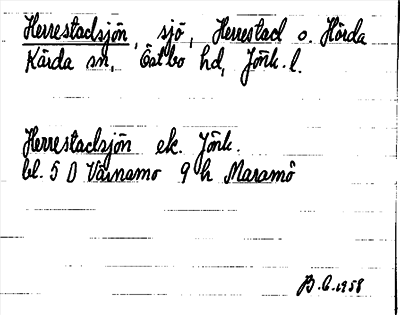 Herrestadsjön, sjö, Herrestad o. Hörda
Kärda sn, Östbo hd, Jönk. l.
Herrestadsjön ek. Jönk.
bl. 5 D Värnamo 9 h Maramö
B.C. 1958